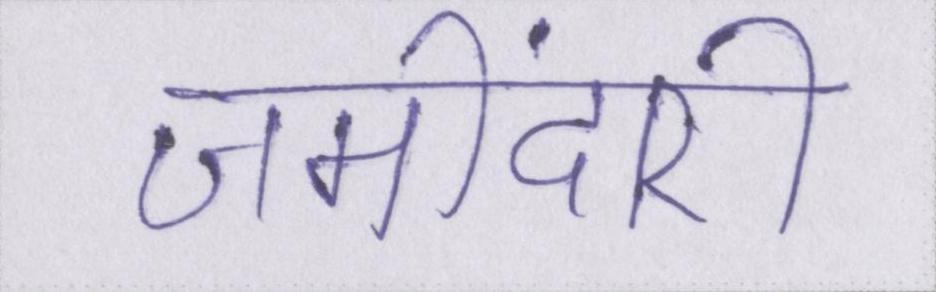 जमींदारी